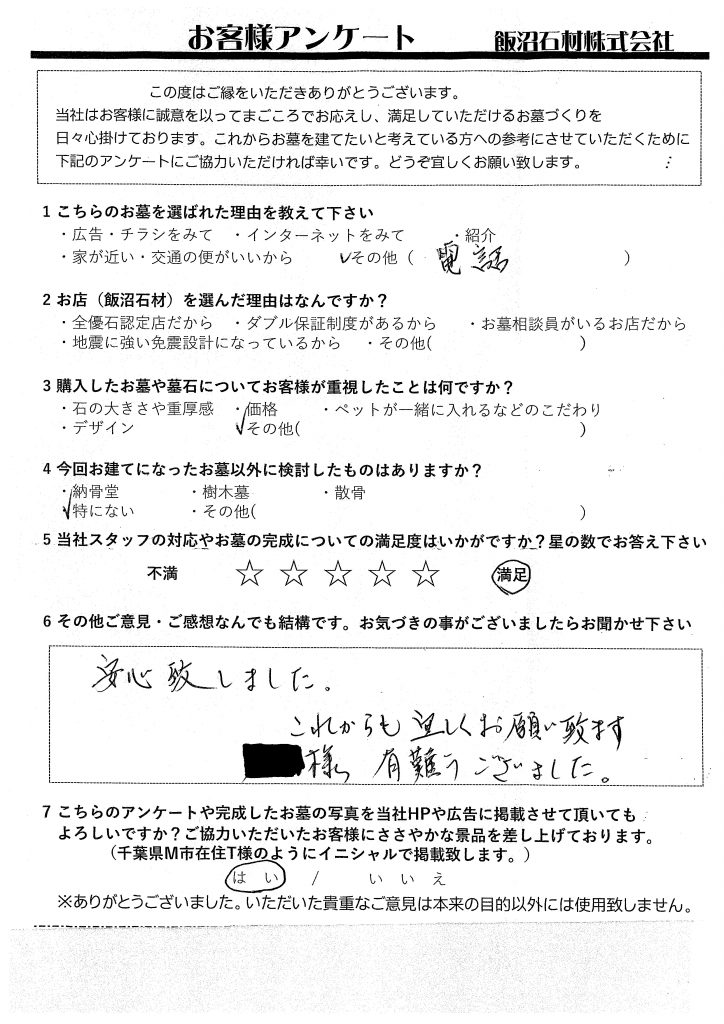 お客様アンケート 飯沼石材株式会社
この度はご縁をいただきありがとうございます。
当社はお客様に誠意を以ってまごころでお応えし、満足していただけるお墓づくりを
日々心掛けております。これからお墓を建てたいと考えている方への参考にさせていただくために
下記のアンケートにご協力いただければ幸いです。どうぞ宜しくお願い致します。
1 こちらのお墓を選ばれた理由を教えて下さい
・広告・チラシをみて ・インターネットをみて ・紹介
・家が近い・交通の便がいいから ✓その他（ 電話 ）
2 お店（飯沼石材）を選んだ理由はなんですか？
・全優石認定店だから ・ダブル保証制度があるから ・お墓相談員がいるお店だから
・地震に強い免震設計になっているから ・その他( )
3 購入したお墓や墓石についてお客様が重視したことは何ですか？
・石の大きさや重厚感 ・価格 ・ペットが一緒に入れるなどのこだわり
・デザイン ✓その他( )
4 今回お建てになったお墓以外に検討したものはありますか？
・納骨堂 ・樹木墓 ・散骨
✓特にない ・その他( )
5 当社スタッフの対応やお墓の完成についての満足度はいかがですか？星の数でお答え下さい
不満 ☆ ☆ ☆ ☆ ☆ 満足
6 その他ご意見・ご感想なんでも結構です。お気づきの事がございましたらお聞かせ下さい
安心致しました。
これからも宜しくお願い致ます
様、有難うございました。
7 こちらのアンケートや完成したお墓の写真を当社HPや広告に掲載させて頂いても
よろしいですか？ご協力いただいたお客様にささやかな景品を差し上げております。
（千葉県M市在住T様のようにイニシャルで掲載致します。）
はい / いいえ
※ありがとうございました。いただいた貴重なご意見は本来の目的以外には使用致しません。